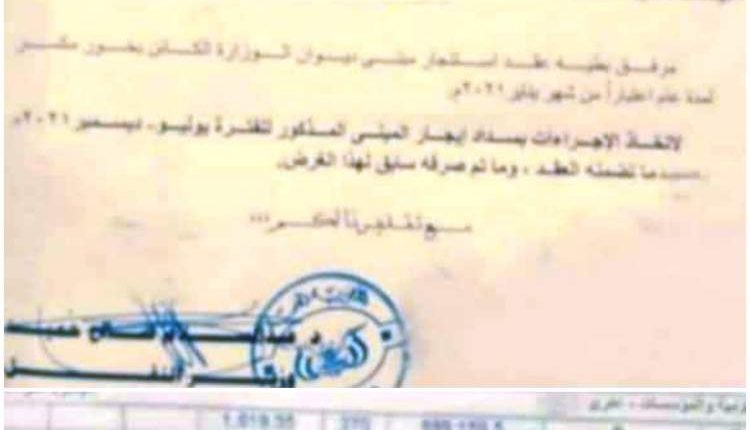 مرفق بطيه عقد استئجار مبنى ديوان الوزارة الكائن بخور مكسر
لمدة عام اعتباراً من شهر يناير ٢٠٢١م.
لاتخاذ الاجراءات بسداد إيجار المبنى المذكور للفترة يوليو- ديسمبر ٢٠٢١م
حسبما تضمنه العقد ، وما تم صرفه سابق لهذا الغرض.
مع تقديرنا لكم،،،
د. عبدالسلام صالح حميد
وزير النقل
والمؤسسات - اخرى
1,619.55 270